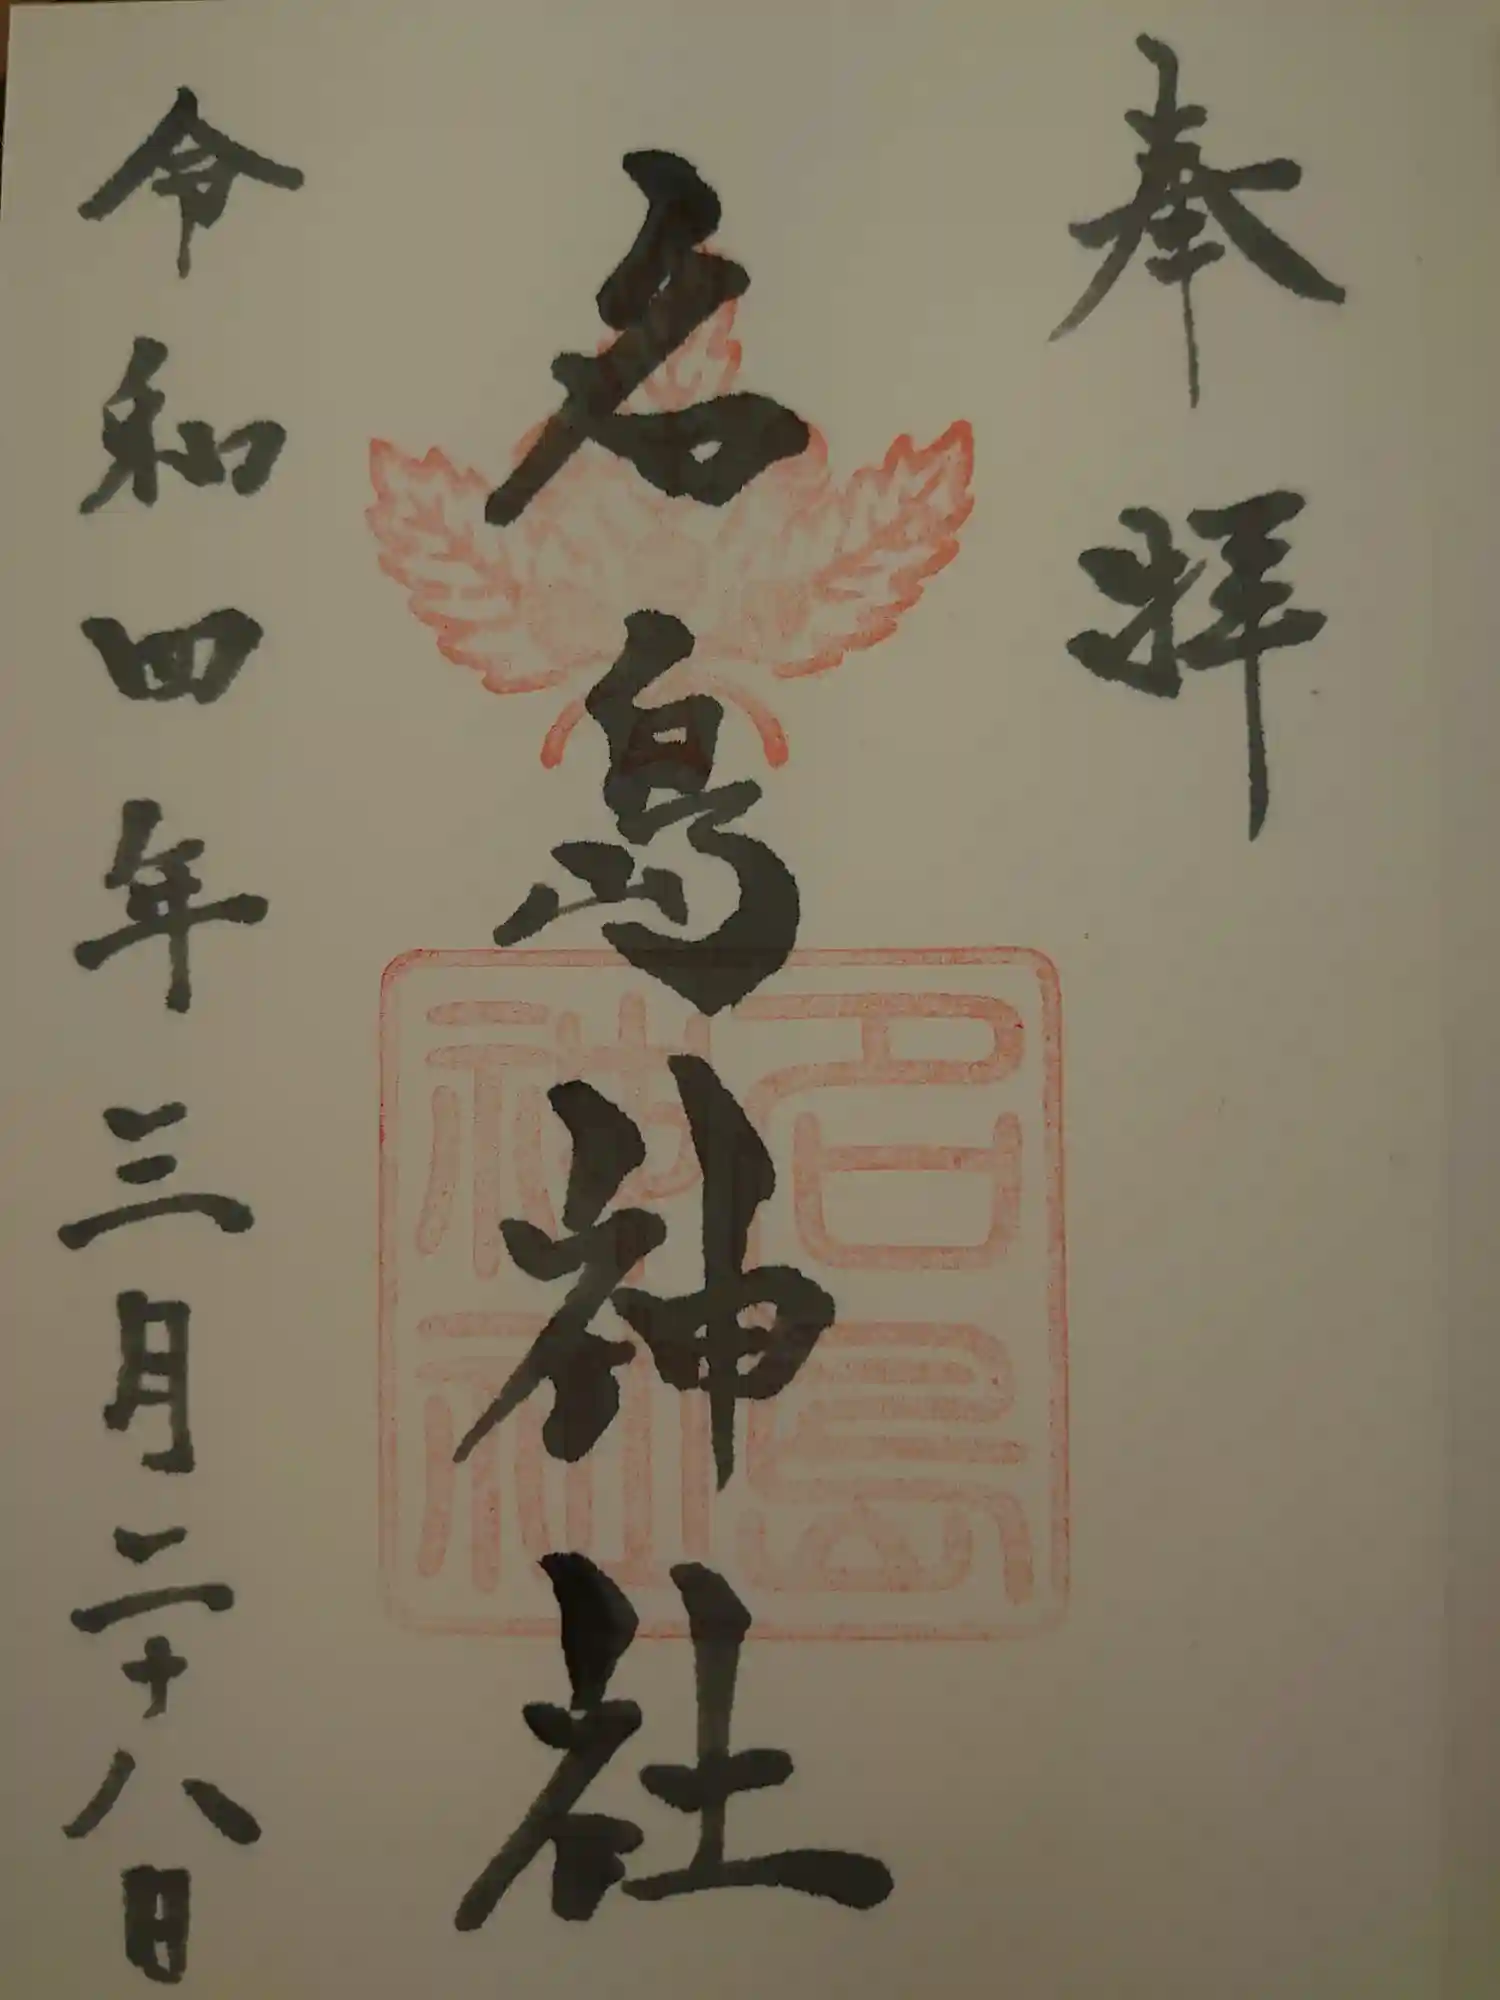 奉拝
名島神社
名島神社
令和四年三月二十八日